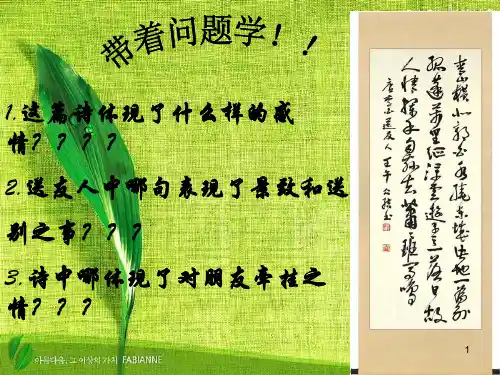 带着问题学！！
1.这篇诗体现了什么样的感
情？？？？
2.送友人中哪句表现了景致和送
别之事？？？
3.诗中哪体现了对朋友牵挂之
情？？？
青山横北郭白水绕东城此地一为别
孤蓬万里征浮云游子意落日故
人情挥手自兹去萧萧班马鸣
唐李白送友人
아름다움, 그 이상의 가치 FABIANNE
1